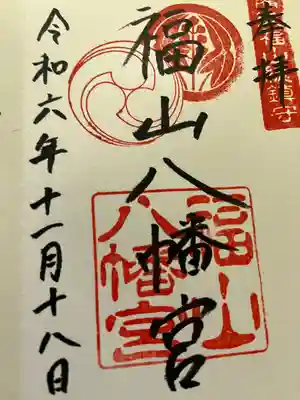 奉拝
福山八幡宮
福山
八幡宮
令和六年十一月十八日